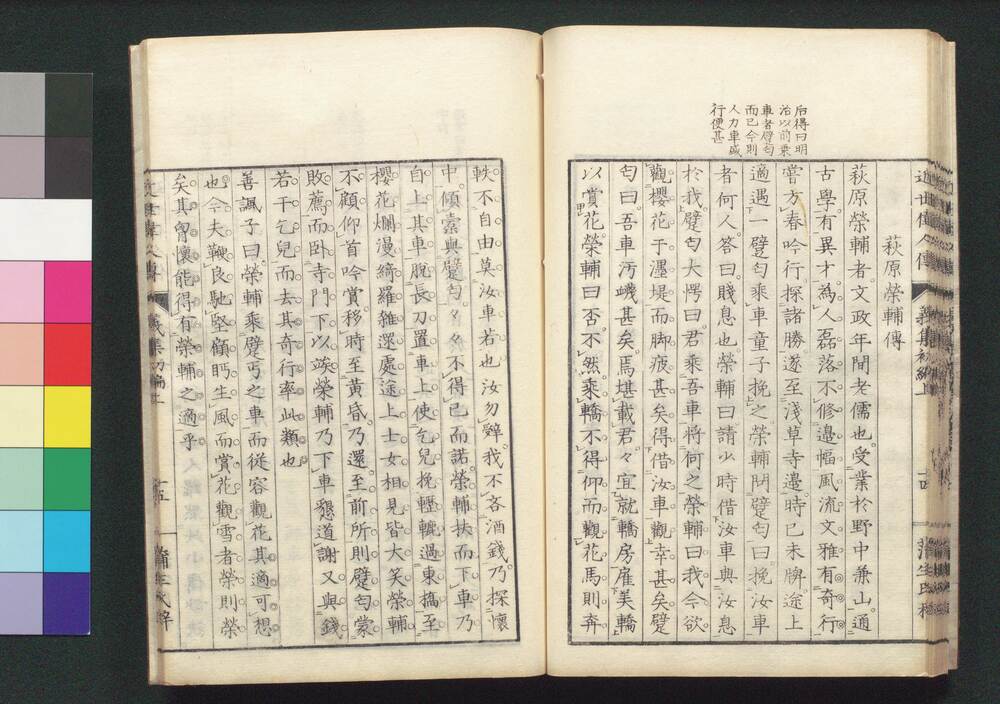 后得曰明
治以前乗
車者躄匂
而已今則
人力車盛
行便甚
近世偉人傳
義集初編上
十四
蒲生氏
萩原榮輔傳
萩原榮輔者文政年間老儒也受業於野中兼山通
古學有異才為人磊落不修邊幅風流文雅有奇行
嘗方春吟行探諸勝遂至淺草寺邉時已未牌途上
適遇一躄匂乘車童子挽之榮輔問躄匂曰挽汝車
者何人答曰賤息也榮輔曰請少時借汝車與汝息
於我躄匂大愕曰君乘吾車將何之榮輔曰我今欲
觀櫻花于墨堤而脚疲甚矣得借汝車觀幸甚矣躄
匂曰吾車汚巇甚矣焉堪載君々宜就轎房雇美轎
以賞花榮輔曰否不然乘轎不得仰而觀花馬則奔
軼不自由莫汝車若也汝勿辭我不吝酒錢乃探懷
中傾槖與躄匂々々不得已而諾榮輔扶而下車乃
自上其車脱長刀置車上使乞兒挽輕轆過東橋至
櫻花爛漫綺羅雜遝處途上士女相見皆大笑榮輔
不顧仰首吟賞移時至黃昏乃還至前所則躄匂蒙
敗薦而卧寺門下以竢榮輔乃下車懇道謝又與錢
若干乞兒而去其奇行率此類也
善諷子曰榮輔乘躄丐之車而從容觀花其適可想
也今夫鞭良馳堅顧眄生風而賞花觀雪者榮則榮
矣其胷懷能得有榮輔之適乎
十五